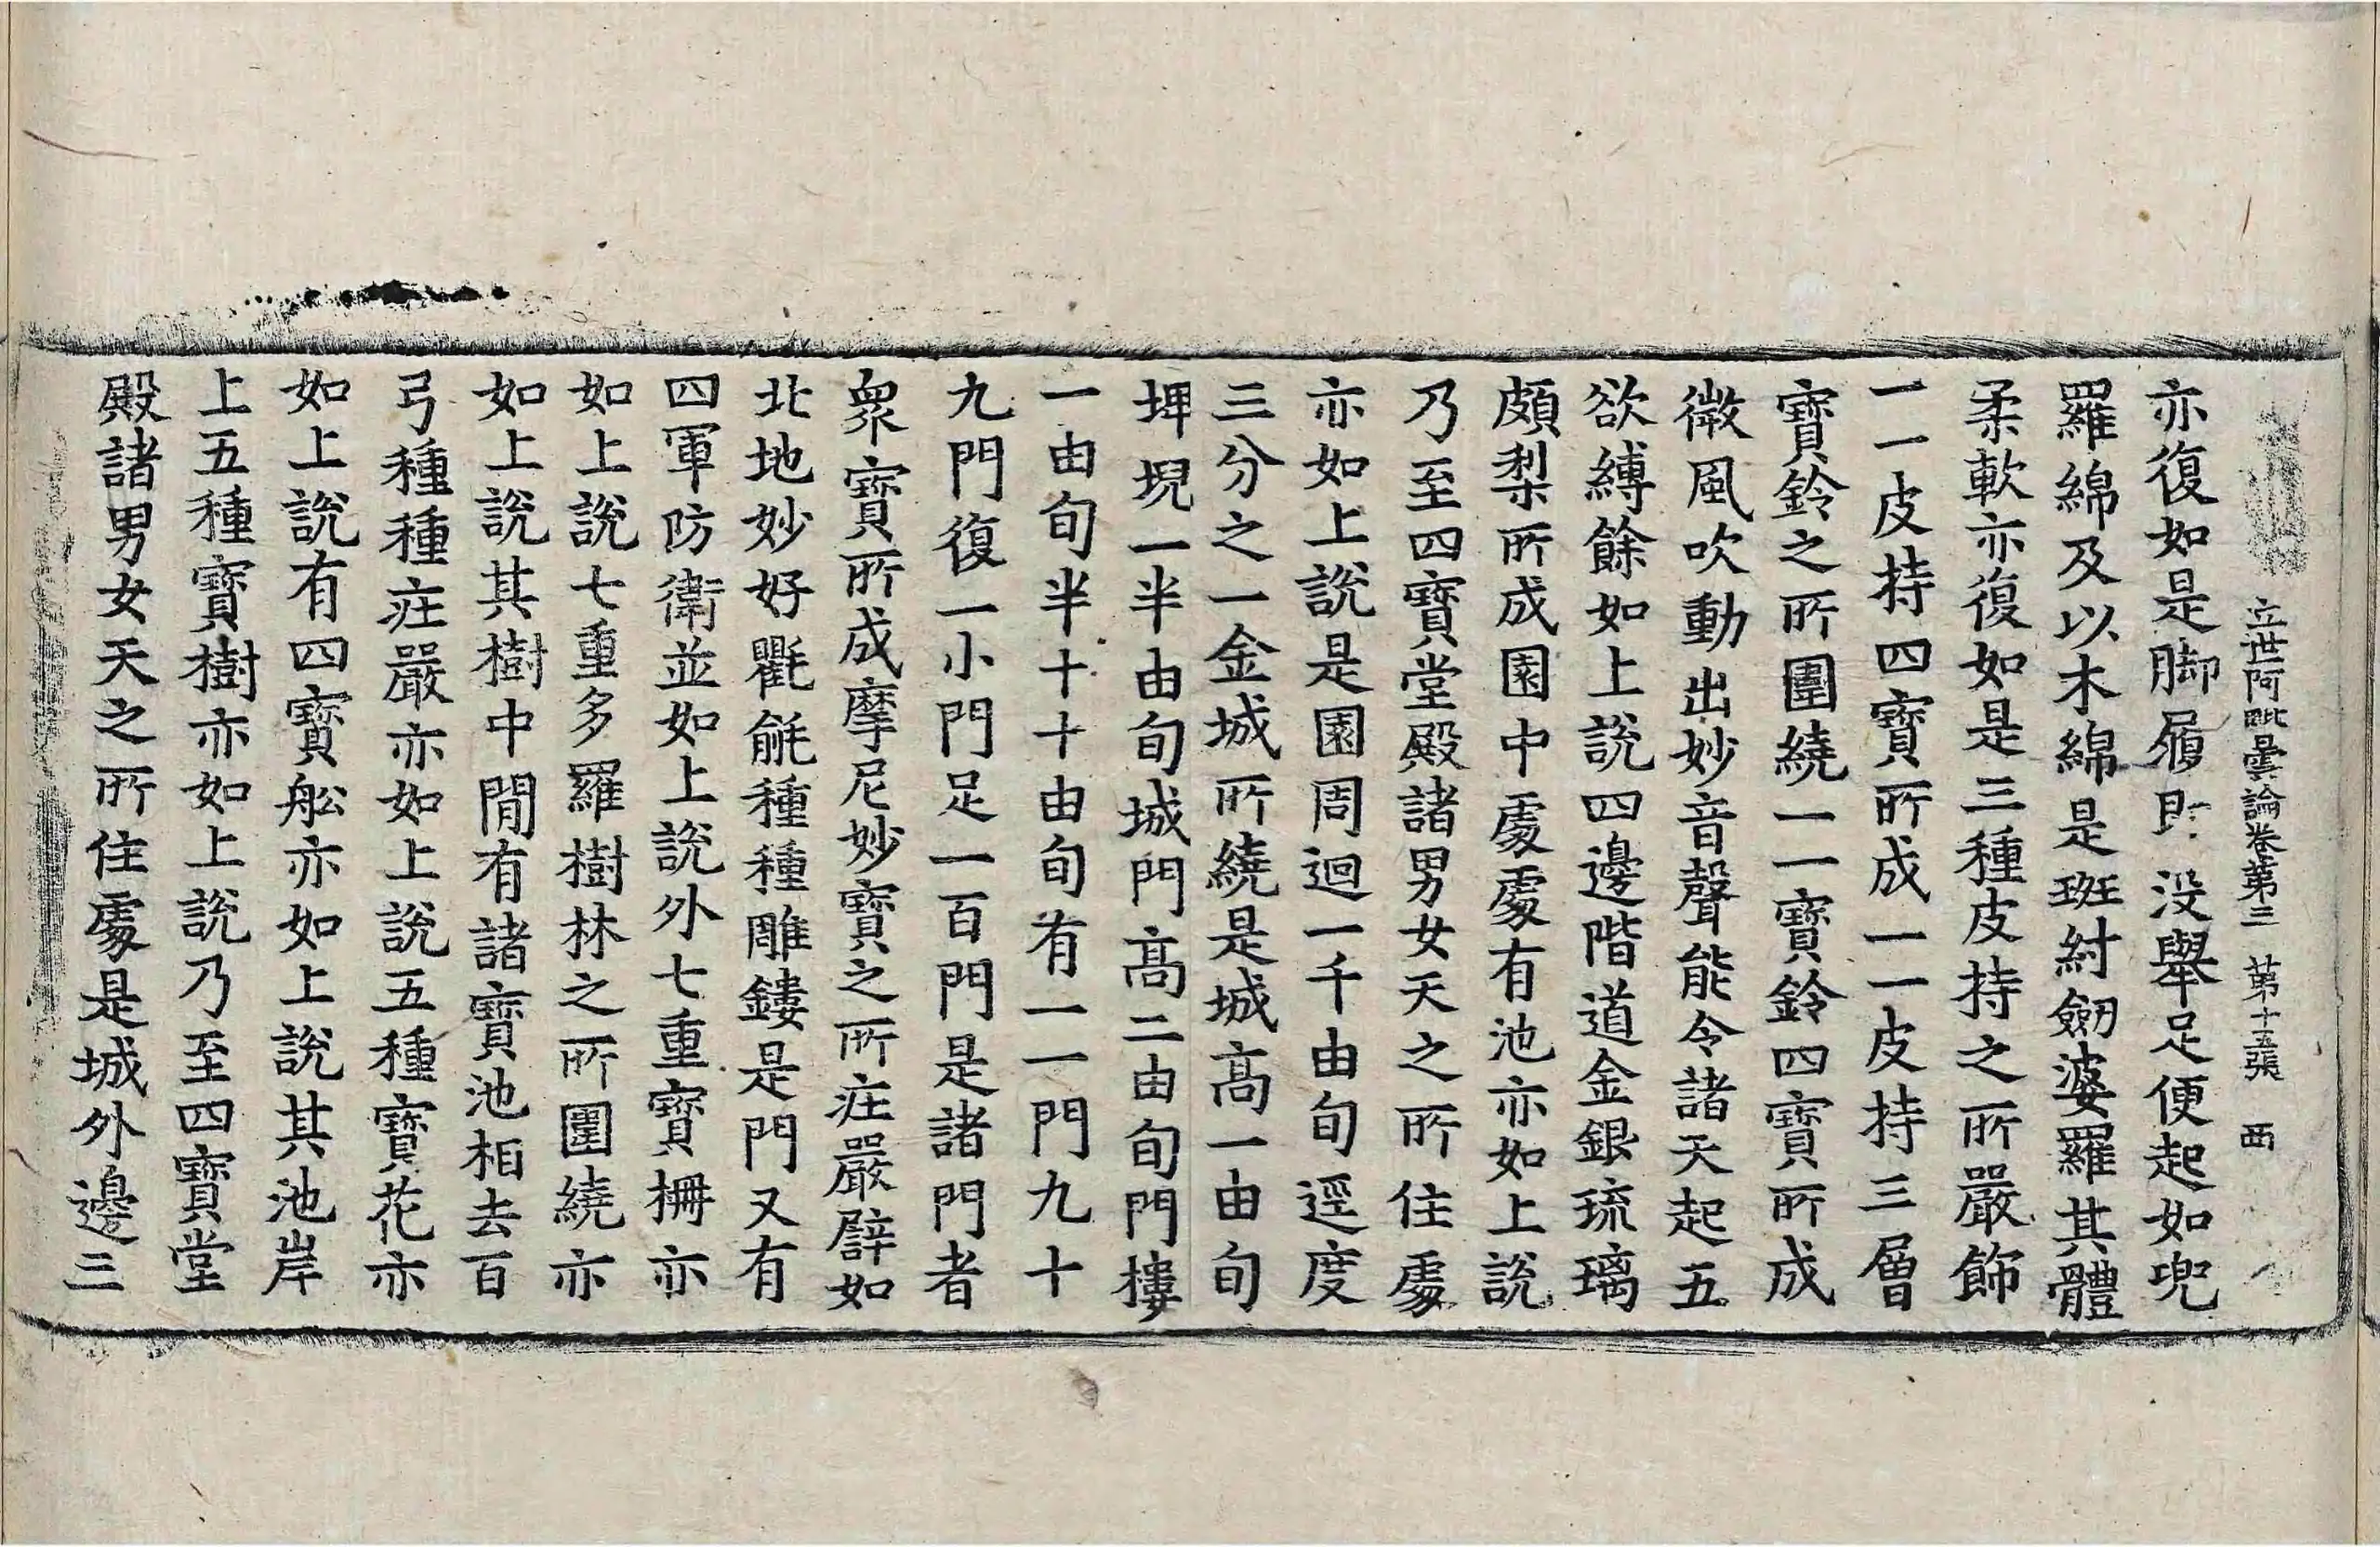 立世阿毗曇論卷第三 第十五張 西
亦復如是脚履即没舉足便起如兜
羅綿及以木綿是斑紂劒婆羅其體
柔軟亦復如是三種皮持之所嚴飾
一一皮持四寶所成一一皮持三層
寶鈴之所圍繞一一寶鈴四寶所成
微風吹動出妙音聲能令諸天起五
欲縛餘如上說四邊階道金銀琉璃
頗梨所成園中處處有池亦如上說
乃至四寶堂殿諸男女天之所住處
亦如上說是園周迴一千由旬逕度
三分之一金城所繞是城高一由旬
埤堄一半由旬城門高二由旬門摟
一由旬半十十由旬有一一門九十
九門復一小門足一百門是諸門者
衆寶所成摩尼妙寶之所莊嚴譬如
北地妙好氍毹種種雕鏤是門又有
四軍防衛並如上說外七重寶柵亦
如上說七重多羅樹林之所圍繞亦
如上說其樹中間有諸寶池相去百
弓種種莊嚴亦如上說五種寶花亦
如上說有四寶舩亦如上說其池岸
上五種寶樹亦如上說乃至四寶堂
殿諸男女天之所住處是城外邊三